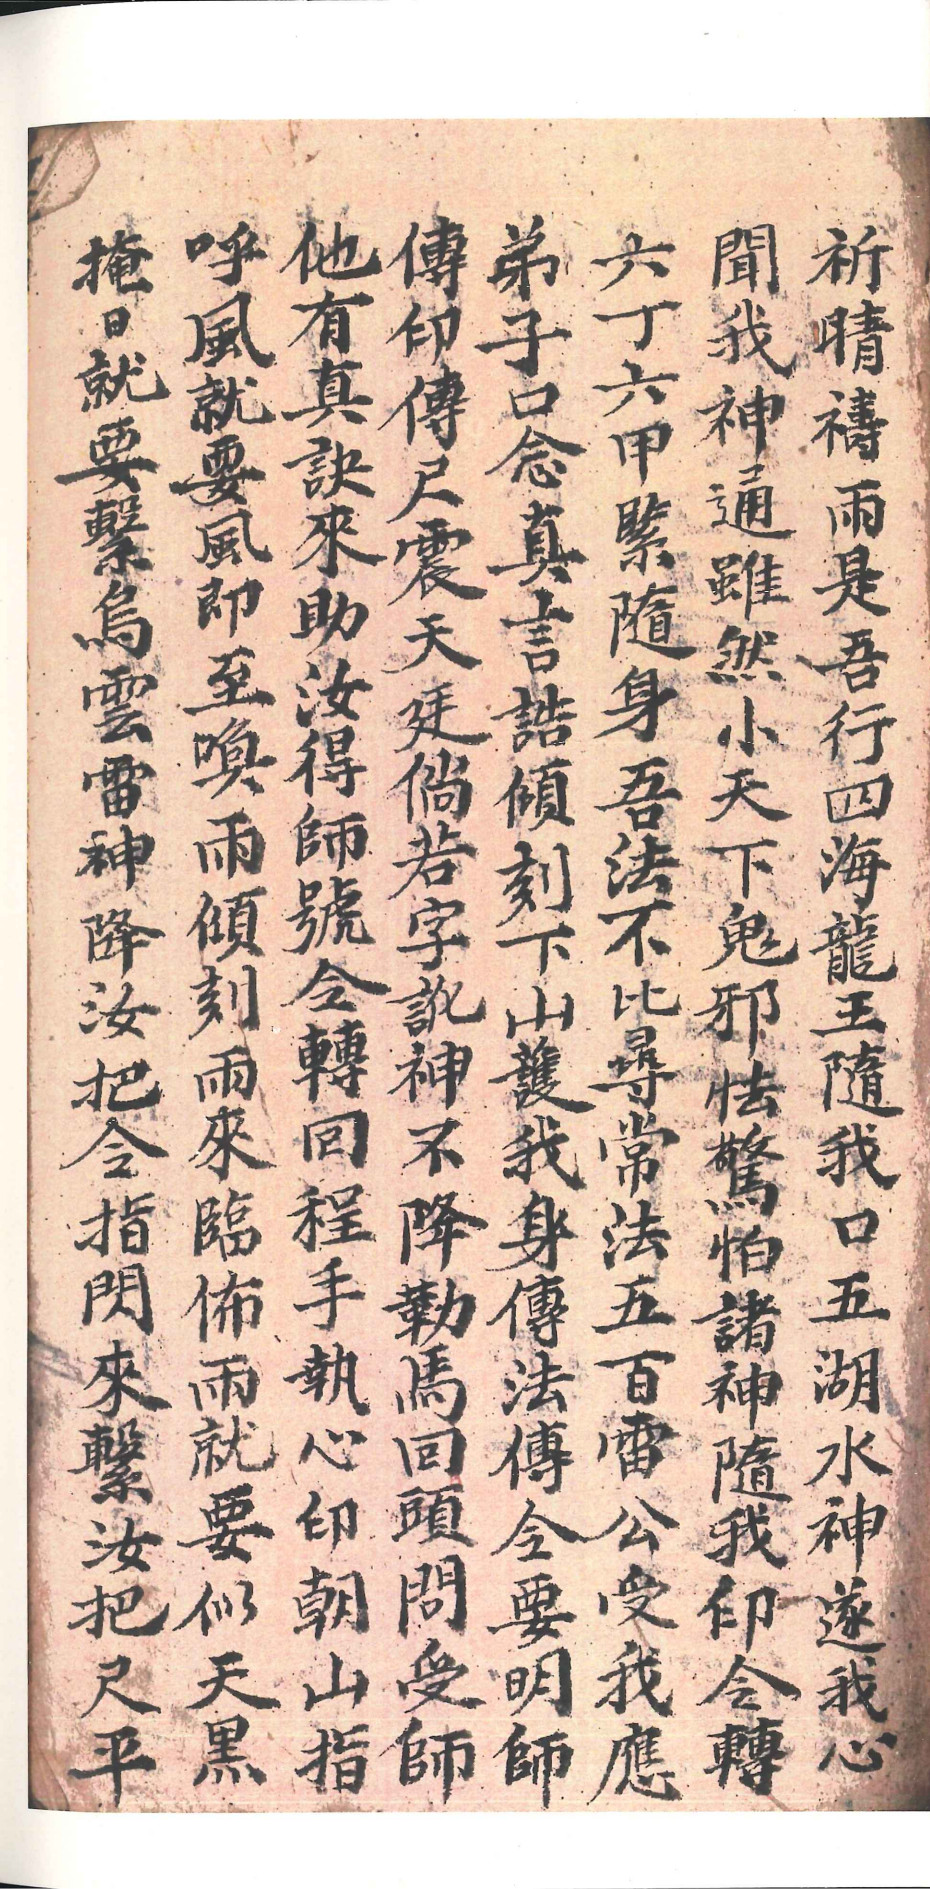 祈晴禱雨是吾行四海龍王隨我口五湖水神遂我心
聞我神通雖然小天下鬼邪怯驚怕諸神隨我印令轉
六丁六甲緊隨身吾法不比尋常法五百雷公受我應
弟子口念真言誥傾刻下山護我身傳法傳令要明師
傳印傳尺震天廷倘若字訛神不降勒馬回頭問受師
他有真訣來助汝得師號令轉回程手執心印朝山指
呼風就要風即至喚雨傾刻雨來臨佈雨就要似天黑
掩日就要繫烏雲雷神降汝把令指閃來繫汝把尺平